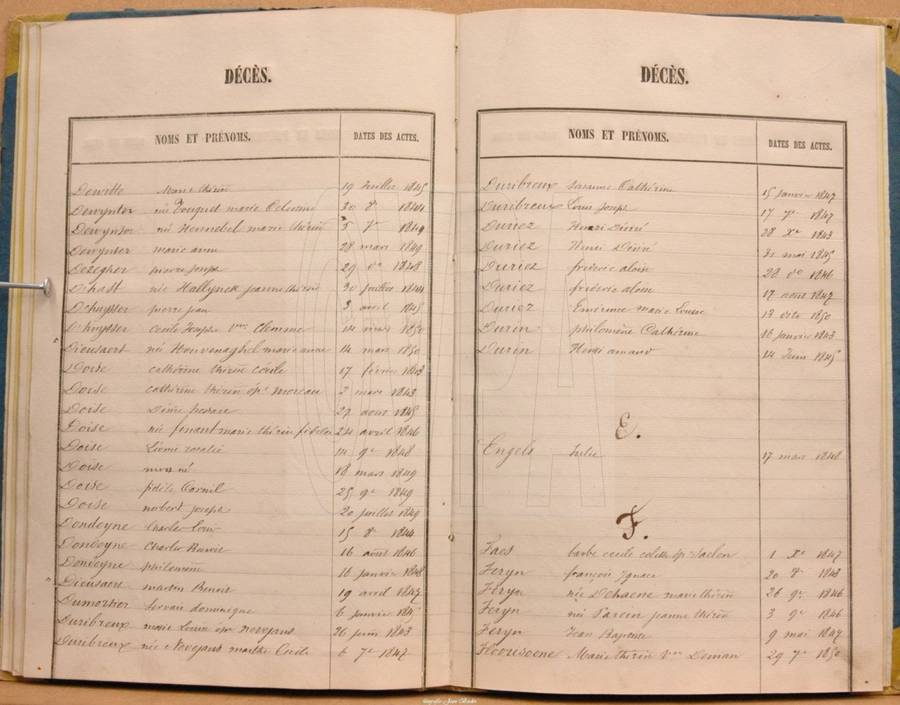 DÉCÈS.
NOMS ET PRÉNOMS. DATES DES ACTES.
Dewitte Marie thérèse 19 Juillet 1845
Dewynter née Touquet marie 20 8e 1844
Dewynter née Hennebel marie thérèse 5 7e 1849
Dewynter marie anne 28 mars 1849
Dezegher pierre Joseph 29 1848
D'hast née Hallynck jeanne thérèse 30 juillet 1844
D'huysser pierre jean 3 avril 1845
D'huysser Cécile Josèphe Vve 14 mars 1850
Dieusaert née marie anne 14 mars 1850
Doise cathérine thérèse cécile 17 février 1843
Doise cathérine thérèse épse moreau 2 mars 1843
Doise 22 août 1845
Doise née marie thérèse fidèle 24 avril 1846
Doise rosalie 11 9e 1848
Doise mort né 18 mars 1849
Doise fidèle Corneil 25 9e 1849
Doise norbert joseph 20 juillet 1849
Dondeyne Charles Louis 15 8e 1844
Dondeyne Charles Benoit 16 août 1846
Dondeyne philomène 16 janvier 1848
Dieusaert martin Benoit 19 avril 1847
Dumortier dominique 6 janvier
Duribreux marie Louise épse Novejans 26 juin 1843
Duribreux née Novejans marthe Cécile 6 7e 1847
DÉCÈS.
NOMS ET PRÉNOMS. DATES DES ACTES.
Duribreux Cathérine 15 janvier 1847
Duribreux Louis Joseph 17 7e 1847
Duriez Henri Désiré 28 Xe 1843
Duriez Henri Désiré 31 mai 1845
Duriez fréderic aloin 28 8e 1846
Duriez fréderic aloin 17 août 1847
Duriez marie Louise 13 1850
Durin philomène Cathérine 16 janvier 1843
Durin Henri amand 14 Juin 1845
E.
Engels Julie 17 mars 1848
F.
Faes barbe cécile colette ép. 1 Xe 1847
Feryn françois Ignace 20 8e 1843
Feryn née Dehaene marie thérèse 26 9e 1846
Feryn née jeanne thérèse 3 9e 1846
Feryn Jean Baptiste 9 mai 1847
Marie thérèse Vve Deman 29 7e 1850